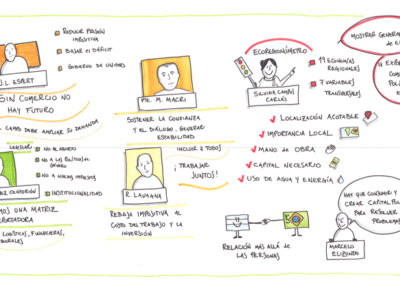 REDUCIR PRESIÓN
IMPOSITIVA
BAJAR EL DÉFICIT
GOBIERNO DE UNIDAD
J.L. ESPERT
SIN COMERCIO NO
HAY FUTURO
CAMPO DEBE AMPLIAR SU DEMANDA
NO AL ABORTO
NO A LA
GÉNERO
NO A NUEVOS IMPUESTOS
INSTITUCIONALIDAD
CENTURIÓN
UNA MATRIZ
LOGÍSTICOS, FINANCIEROS,
PTE. M. MACRI
SOSTENER LA CONFIANZA
Y EL DIÁLOGO, GENERAR
ESTABILIDAD
R. LAVAGNA
INCLUIR A TODOS
¡TRABAJAR
JUNTOS!
REBAJA IMPOSITIVA AL
COSTO DEL TRABAJO Y LA
INVERSIÓN
ECORREGIONÓMETRO
SILVINA CAMPOS
CARLÉS
19 ECONOMÍAS
REGIONALES
7 VARIABLES
TRANSVERSALES
LOCALIZACIÓN ACOTABLE
IMPORTANCIA LOCAL
MANO DE OBRA
CAPITAL NECESARIO
USO DE AGUA Y ENERGÍA
RELACIÓN MÁS ALLÁ DE
LAS PERSONAS
MOSTRAR
HAY QUE CONSUMIR Y
CREAR CAPITAL
PARA RESOLVER
PROBLEMAS
MARCELO
ELIZONDO